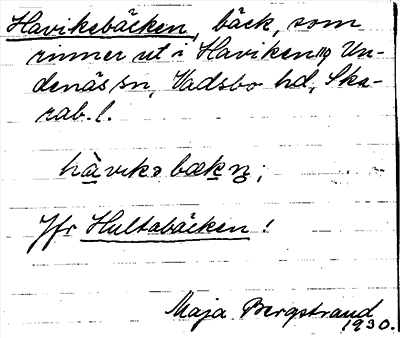 Havikebäcken, bäck, som
rinner ut i Haviken, Un-
denäs sn, Vadsbo hd, Ska-
rab. l.
hàvikə bækn̥;
Jfr Hultabäcken!
Maja Bergstrand
1930.